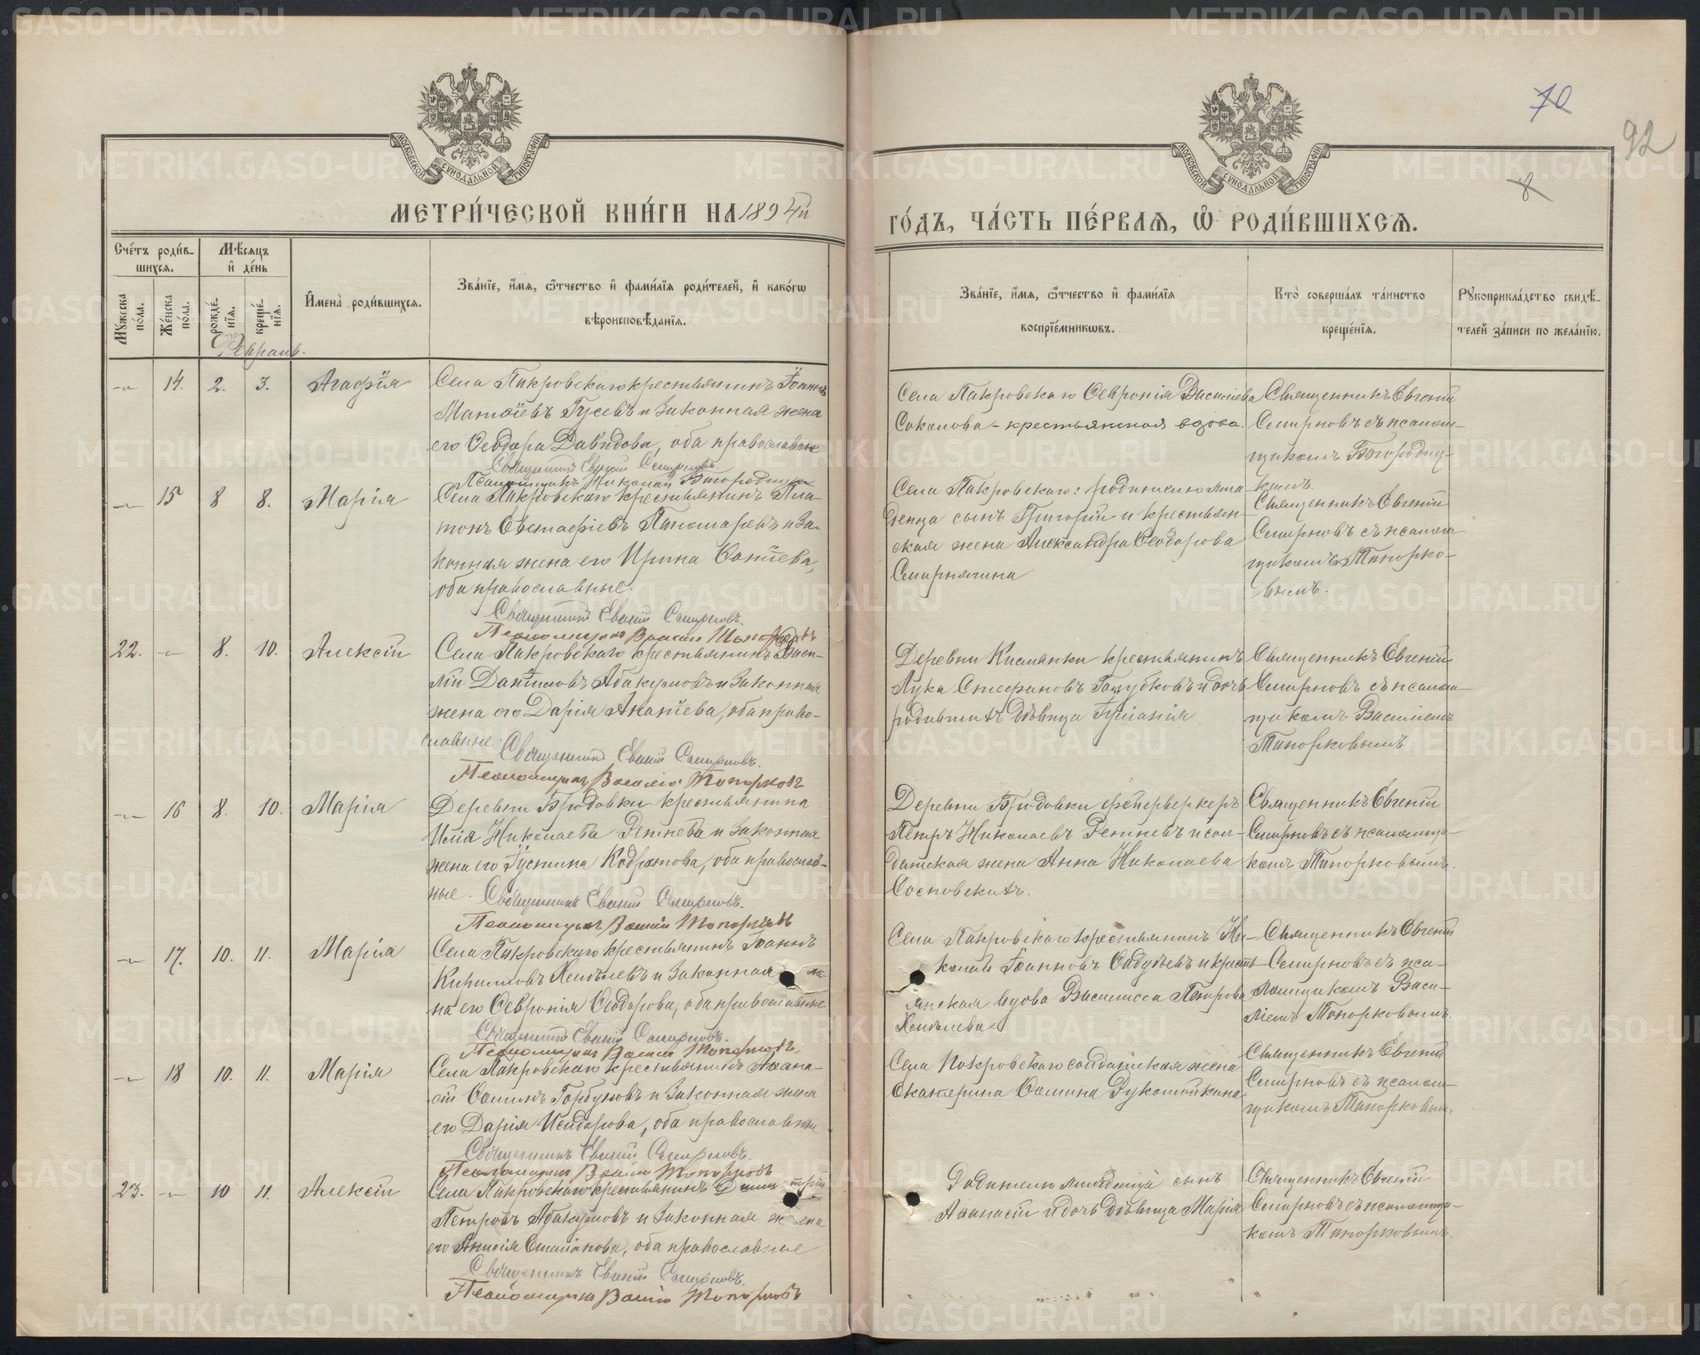 METRIKI.GASO-URAL.RU
70
92
8
МОСКОВСКОЙ СУНОДАЛЬНОЙ ТИПОГРАФІИ
МОСКОВСКОЙ СУНОДАЛЬНОЙ ТИПОГРАФІИ
МЕТРИ́ЧЕСКОЙ КНИ́ГИ НА 1894й
ГО́ДЪ, ЧА́СТЬ ПЕ́РВАЯ, Ѽ РОДИ́ВШИХСЯ.
Сче́тъ роди́в-
шихся.
Мѣ́сяцъ
и҆ де́нь
Мꙋ́жеска по́ла.
Же́нска по́ла.
рожде́-
нїя.
креще́-
нїя.
И҆мена̀ роди́вшихся.
Зва́нїе, и҆́мя, ѻ҆́тчество и҆ фами́лїя роди́телей, и҆ како́гѡ
вѣроисповѣ́данїя.
Зва́нїе, и҆́мя, ѻ҆́тчество и҆ фами́лїя
воспрїе́мникѡвъ.
Кто̀ соверша́лъ та́инство
креще́нїя.
Рꙋкоприкла́дство свидѣ́-
телей за́писи по жела́нїю.
Февраль.
14. 2. 3. Агафія
Села Покровскаго крестьянинъ Іоаннъ
Матѳіевъ Гусевъ и законная жена
его Ѳеодора Давидова, оба православные
Священникъ Евгеній Смирновъ.
Псаломщикъ Николай Богородицкій
Села Покровскаго Ѳевронія Васильева
Соколова - крестьянская вдова.
Священникъ Евгеній
Смирновъ съ псалом-
щикомъ Богородиц-
кимъ.
15 8 8. Марія
Села Покровскаго крестьянинъ Пла-
тонъ Евстафіевъ Пономаревъ и за-
конная жена его Ирина
оба православные.
Священникъ Евгеній Смирновъ.
Псаломщикъ Василій Топорковъ
Села Покровскаго: родителю мла-
денца сынъ Григорій и крестьян-
ская жена Александра Ѳеодорова
Смирнягина
Священникъ Евгеній
Смирновъ съ псалом-
щикомъ Топорко-
вымъ.
22. 8. 10. Алексій
Села Покровскаго крестьянинъ Васи-
лій Даниловъ Абакумовъ и законная
жена его Дарія Ананіева, оба право-
славные.
Священникъ Евгеній Смирновъ.
Псаломщикъ Василій Топорковъ
Деревни крестьянинъ
Лука Стефановъ Голубковъ и дочь
родившихъ дѣвица
Священникъ Евгеній
Смирновъ съ псалом-
щикомъ Василіемъ
Топорковымъ
16 8. 10. Марія
Деревни Бродовки крестьянина
Илія Николаева Ретнева и законная
жена его Іустина Кодратова, оба православ-
ные. Священникъ Евгеній Смирновъ.
Псаломщикъ Василій Топорковъ
Деревни Бродовки фейерверкеръ
Петръ Николаевъ Ретневъ и сол-
датская жена Анна Николаева
Сосновскихъ.
Священникъ Евгеній
Смирновъ съ псаломщи-
комъ Топорковымъ.
17. 10. 11. Марія
Села Покровскаго крестьянинъ Іоаннъ
Кириловъ и законная же-
на его Ѳевронія Ѳеодорова, оба православные
Священникъ Евгеній Смирновъ.
Псаломщикъ Василій Топорковъ
Села Покровскаго крестьянинъ Ни-
колай Іоанновъ и кресть-
янская вдова Василисса Петрова
Священникъ Евгеній
Смирновъ съ пса-
ломщикомъ Васи-
ліемъ Топорковымъ.
18 10. 11. Марія
Села Покровскаго крестьянинъ Аѳана-
сій Ѳоминъ Горбуновъ и законная жена
его Дарія Исидорова, оба православные
Священникъ Евгеній Смирновъ.
Псаломщикъ Василій Топорковъ
Села Покровскаго солдатская жена
Екатерина Ѳомина
Священникъ Евгеній
Смирновъ съ псалом-
щикомъ Топорковым.
23. 10 11. Алексій
Села Покровскаго крестьянинъ Димитрій
Петровъ Абакумовъ и законная жена
его оба православные
Священникъ Евгеній Смирновъ.
Псаломщикъ Василій Топорковъ
Родителю младенца сынъ
Аѳанасій и дочь дѣвица Марія
Священникъ Евгеній
Смирновъ съ псаломщи-
комъ Топорковымъ.